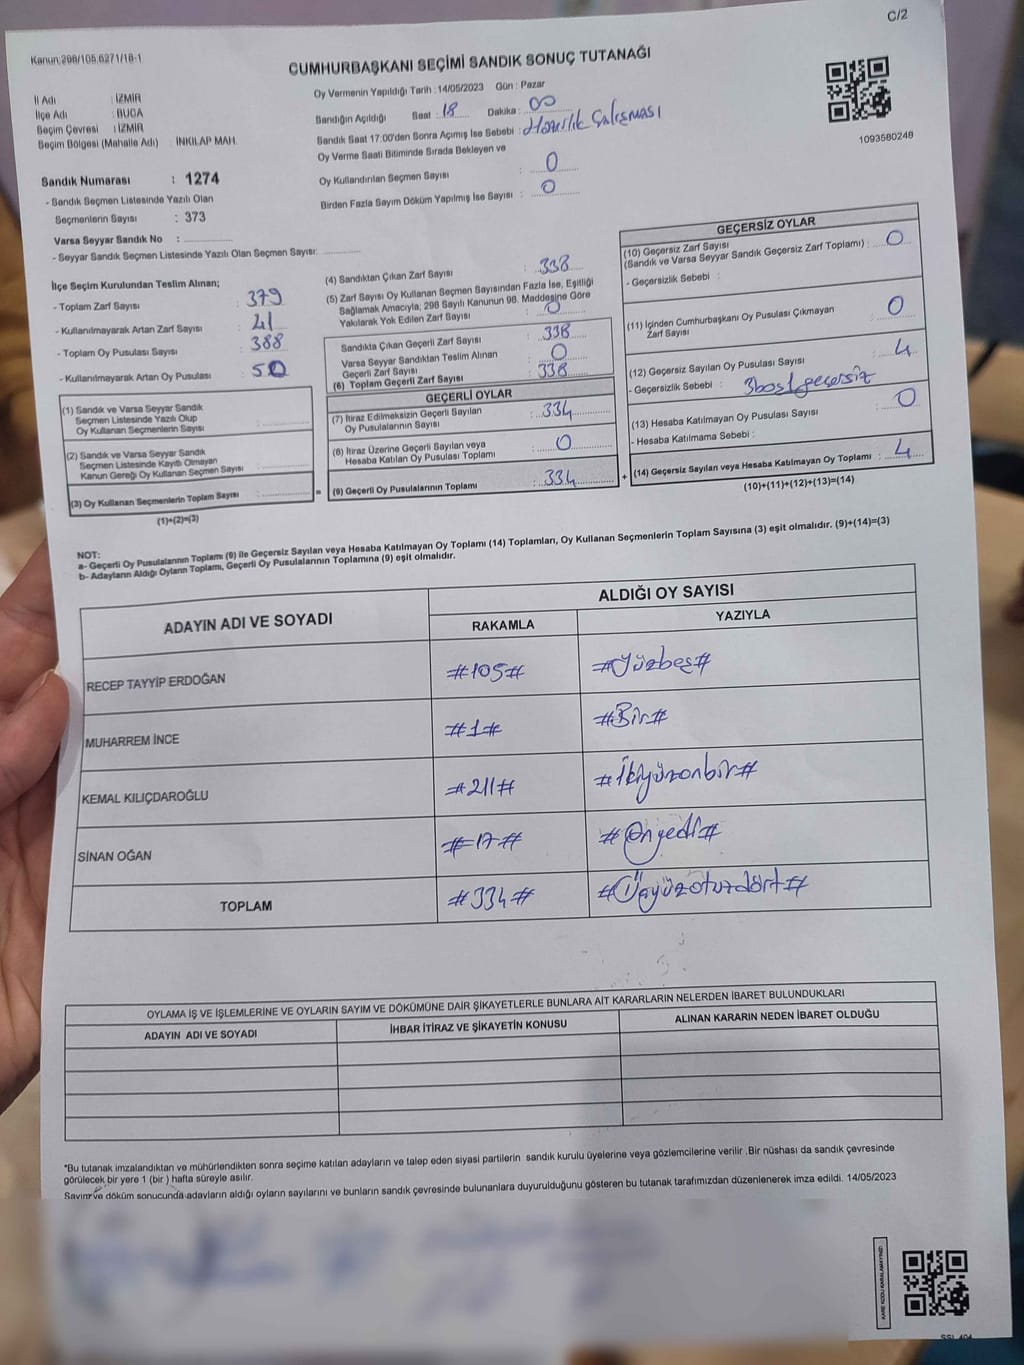 C/2
Kanun:298/105,6271/18-1
CUMHURBAŞKANI SEÇİMİ SANDIK SONUÇ TUTANAĞI
Oy Vermenin Yapıldığı Tarih :14/05/2023 Gün : Pazar
İl Adı : İZMİR
İlçe Adı : BUCA
Seçim Çevresi : İZMİR
Seçim Bölgesi (Mahalle Adı) : İNKILAP MAH.
Sandığın Açıldığı Saat : 18 Dakika : 00
Sandık Saat 17:00'den Sonra Açımış İse Sebebi : Hazırlık Çalışması
Oy Verme Saati Bitiminde Sırada Bekleyen ve
Oy Kullandırılan Seçmen Sayısı : 0
Birden Fazla Sayım Döküm Yapılmış İse Sayısı : 0
1093580248
Sandık Numarası : 1274
- Sandık Seçmen Listesinde Yazılı Olan
Seçmenlerin Sayısı : 373
Varsa Seyyar Sandık No :
- Seyyar Sandık Seçmen Listesinde Yazılı Olan Seçmen Sayısı:
İlçe Seçim Kurulundan Teslim Alınan;
- Toplam Zarf Sayısı : 379
- Kullanılmayarak Artan Zarf Sayısı : 41
- Toplam Oy Pusulası Sayısı : 388
- Kullanılmayarak Artan Oy Pusulası : 50
(1) Sandık ve Varsa Seyyar Sandık
Seçmen Listesinde Yazılı Olup
Oy Kullanan Seçmenlerin Sayısı :
(2) Sandık ve Varsa Seyyar Sandık
Seçmen Listesinde Kayıtlı Olmayan
Kanun Gereği Oy Kullanan Seçmen Sayısı :
(3) Oy Kullanan Seçmenlerin Toplam Sayısı : =
(1)+(2)=(3)
(4) Sandıktan Çıkan Zarf Sayısı : 338
(5) Zarf Sayısı Oy Kullanan Seçmen Sayısından Fazla İse, Eşitliği
Sağlamak Amacıyla, 298 Sayılı Kanunun 98. Maddesine Göre
Yakılarak Yok Edilen Zarf Sayısı : 0
Sandıkta Çıkan Geçerli Zarf Sayısı : 338
Varsa Seyyar Sandıktan Teslim Alınan
Geçerli Zarf Sayısı : 0
(6) Toplam Geçerli Zarf Sayısı : 338
GEÇERLİ OYLAR
(7) İtiraz Edilmeksizin Geçerli Sayılan
Oy Pusulalarının Sayısı : 334
(8) İtiraz Üzerine Geçerli Sayılan veya
Hesaba Katılan Oy Pusulası Toplamı : 0
(9) Geçerli Oy Pusulalarının Toplamı : 334 +
GEÇERSİZ OYLAR
(10) Geçersiz Zarf Sayısı
(Sandık ve Varsa Seyyar Sandık Geçersiz Zarf Toplamı) : 0
- Geçersizlik Sebebi :
(11) İçinden Cumhurbaşkanı Oy Pusulası Çıkmayan
Zarf Sayısı : 0
(12) Geçersiz Sayılan Oy Pusulası Sayısı : 4
- Geçersizlik Sebebi : 3boş1geçersiz
(13) Hesaba Katılmayan Oy Pusulası Sayısı : 0
- Hesaba Katılmama Sebebi :
(14) Geçersiz Sayılan veya Hesaba Katılmayan Oy Toplamı : 4
(10)+(11)+(12)+(13)=(14)
NOT:
a- Geçerli Oy Pusulalarının Toplamı (9) ile Geçersiz Sayılan veya Hesaba Katılmayan Oy Toplamı (14) Toplamları, Oy Kullanan Seçmenlerin Toplam Sayısına (3) eşit olmalıdır. (9)+(14)=(3)
b- Adayların Aldığı Oyların Toplamı, Geçerli Oy Pusulalarının Toplamına (9) eşit olmalıdır.
ADAYIN ADI VE SOYADI
ALDIĞI OY SAYISI
RAKAMLA YAZIYLA
RECEP TAYYİP ERDOĞAN #105# #Yüzbeş#
MUHARREM İNCE #1# #Bir#
KEMAL KILIÇDAROĞLU #211# #İkiyüzonbir#
SİNAN OĞAN #17# #Onyedi#
TOPLAM #334# #Üçyüzotuzdört#
OYLAMA İŞ VE İŞLEMLERİNE VE OYLARIN SAYIM VE DÖKÜMÜNE DAİR ŞİKAYETLERLE BUNLARA AİT KARARLARIN NELERDEN İBARET BULUNDUKLARI
ADAYIN ADI VE SOYADI İHBAR İTİRAZ VE ŞİKAYETİN KONUSU ALINAN KARARIN NEDEN İBARET OLDUĞU
*Bu tutanak imzalandıktan ve mühürlendikten sonra seçime katılan adayların ve talep eden siyasi partilerin sandık kurulu üyelerine veya gözlemcilerine verilir .Bir nüshası da sandık çevresinde
görülecek bir yere 1 (bir ) hafta süreyle asılır.
Sayım ve döküm sonucunda adayların aldığı oyların sayılarını ve bunların sandık çevresinde bulunanlara duyurulduğunu gösteren bu tutanak tarafımızdan düzenlenerek imza edildi. 14/05/2023
KARE KODU KARALAMAYINIZ!